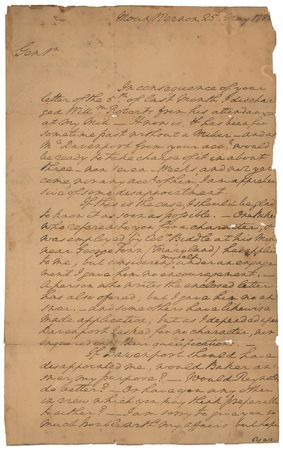 Mount Vernon 25th May 1785
Gentn
In consequence of your
letter of the 5th of last Month I dischar-
ged Willm Roberts from his attendance
at my Mill
sometime past without a Miller and as
Mr Davenport from your acct would
be ready to take charge of it in about
three now seven Weeks and not yet
come, nor any acct of him. I am apprehen-
sive of some disappointment.
If this is the case, I should be glad
to know it as soon as possible. One Baker
who referred to you for a character
was employed by Col Biddle at his Mill
near George Town (Maryland) has applied
to me, but considering myself under an engage-
ment I gave him no encouragement.
A person who writes the enclosed letter
has also offered, but I gave him no an-
swer. And some others have likewise
made application, but as I depended on
Davenport I asked for no character, nor
enquired into their qualifications.
If Davenport should have
disappointed me, would Baker an-
swer my purpose? Would Reynolds
do better? Or have you any other
in view which you may think preferable
to either? I am sorry to give you so
much trouble with my affairs but hope
your